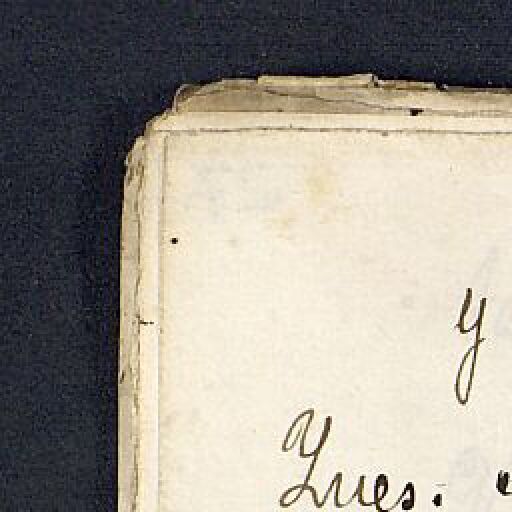 y
Yues: